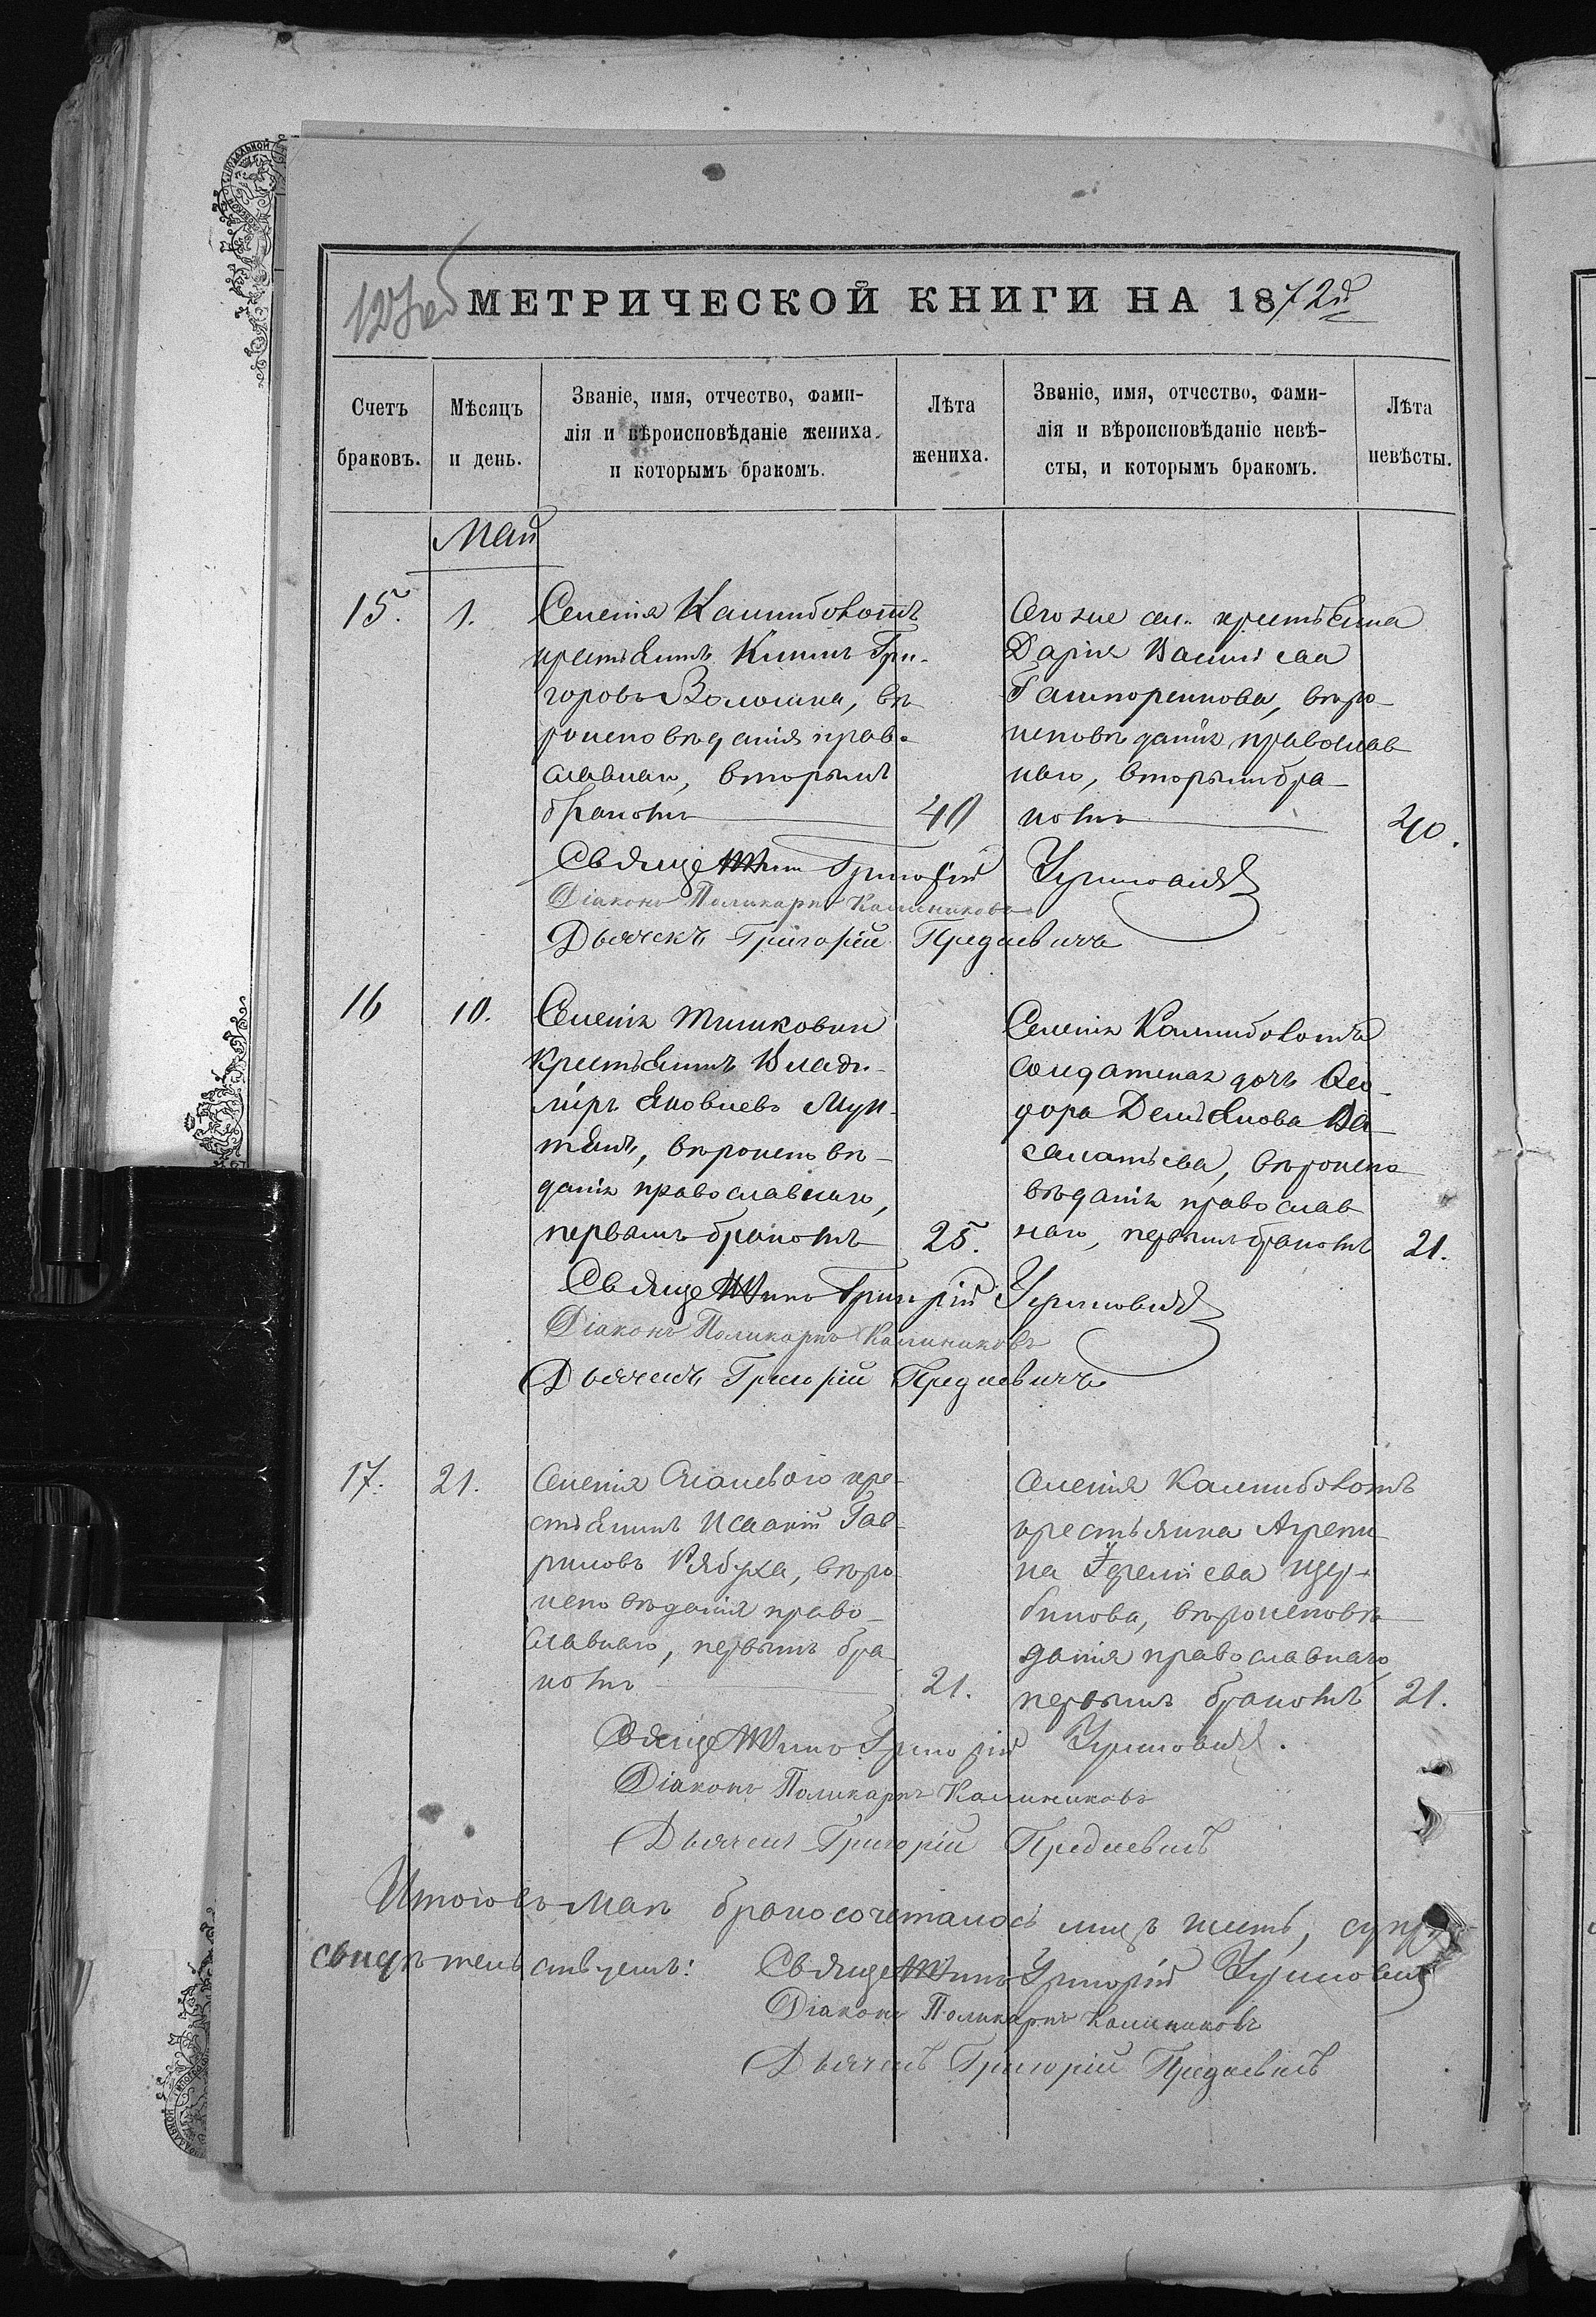 МЕТРИЧЕСКОЙ КНИГИ НА 1872й
Счетъ браковъ.
Мѣсяцъ и день.
Званіе, имя, отчество, фами-
лія и вѣроисповѣданіе жениха
и которымъ бракомъ.
Лѣта жениха.
Званіе, имя, отчество, фами-
лія и вѣроисповѣданіе невѣ-
сты, и которымъ бракомъ.
Лѣта невѣсты.
Май
15. 1.
Селенія Калнибολотъ
крестьянинъ Климъ Гри-
горовъ Волошинъ, вѣ
роисповѣданія право
славнаго, вторымъ
бракомъ 40
Того же сел. крестьянка
Дарія Васильева
вѣро
исповѣданія православ
наго, вторымъ бра
комъ 40.
Священникъ Григорій
Діаконъ Поликарпъ Калиниковъ
Дьячекъ Григорій
16 10.
Селенія Тишковки
крестьянинъ Влади-
міръ Яковлевъ Мун
тянъ, вѣроисповѣ-
данія православнаго,
первымъ бракомъ 25.
Селенія Калниболотъ
солдатская дочь Ѳео
дора Демьянова
вѣроиспо
вѣданія православ
наго, первымъ бракомъ 21.
Священникъ Григорій
Діаконъ Поликарпъ Калиниковъ
Дьячекъ Григорій
17. 21.
Селенія кре-
стьянинъ Исаакій Гав
риловъ Рябуха, вѣро
исповѣданія право-
славнаго, первымъ бра
комъ 21.
Селенія Калниболотъ
крестьянка Агрепи
на Щер-
бинова, вѣроисповѣ
данія православнаго
первымъ бракомъ 21.
Священникъ Григорій
Діаконъ Поликарпъ Калиниковъ
Дьячекъ Григорій
Итого въ Маѣ бракосочеталось лицъ шесть,
свидѣтельствуемъ: Священникъ Григорій
Діаконъ Поликарпъ Калиниковъ
Дьячекъ Григорій